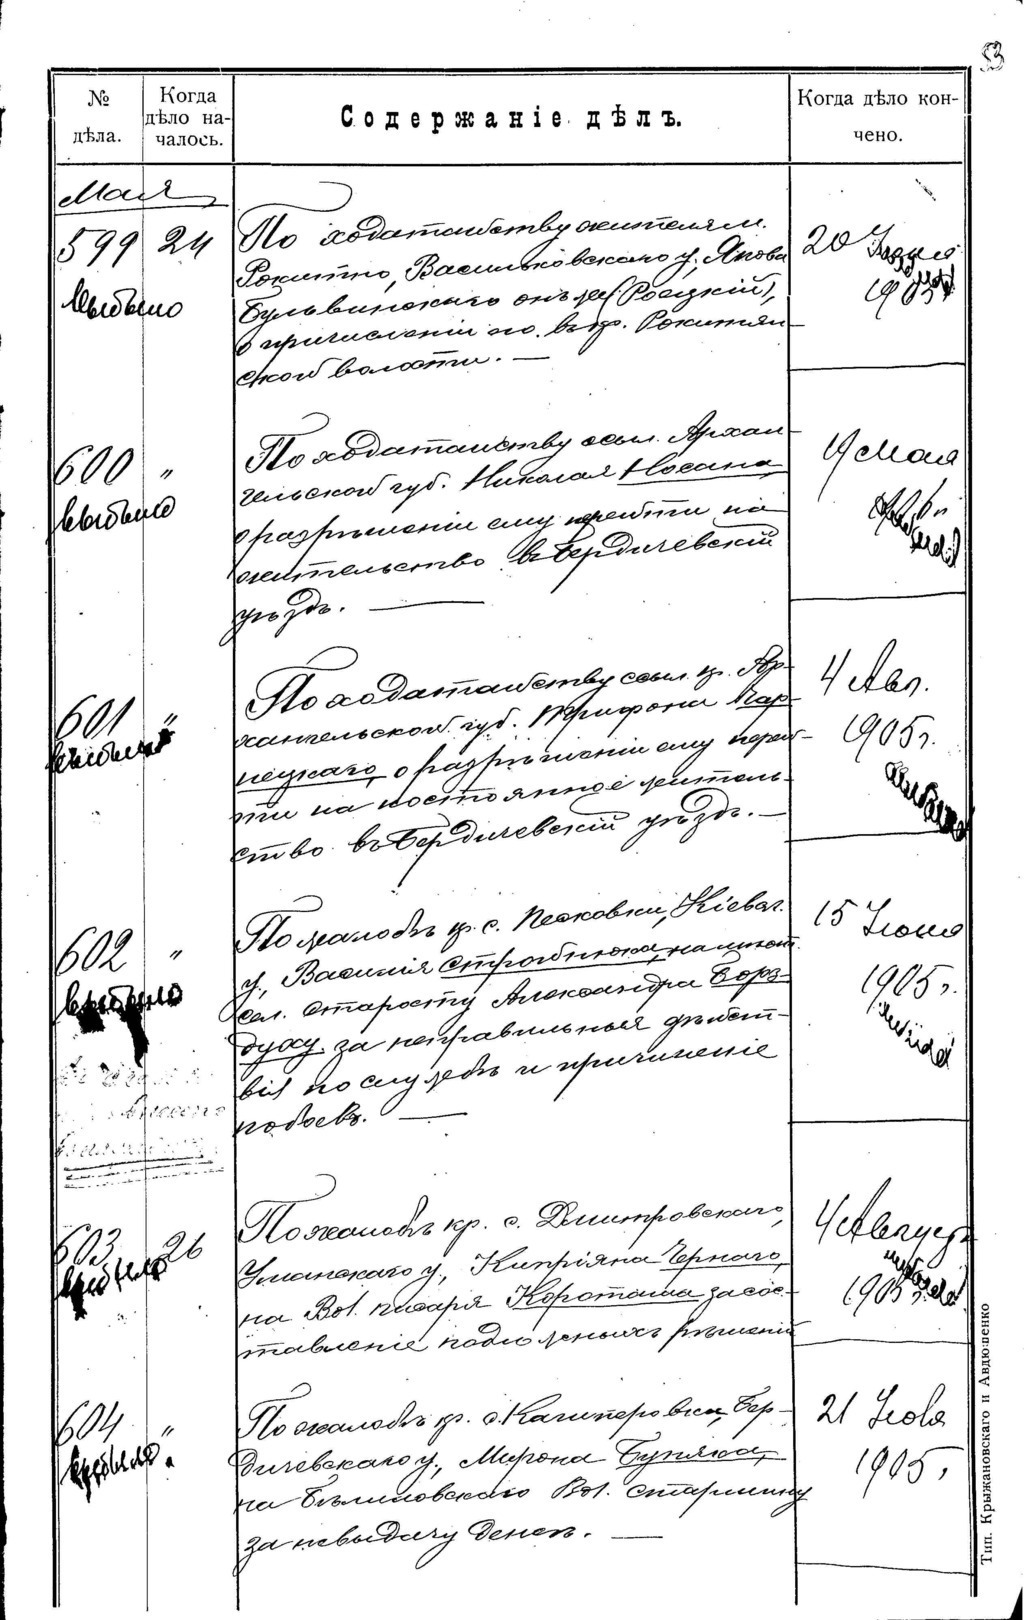 53
№ дѣла.
Когда дѣло началось.
Содержаніе дѣлъ.
Когда дѣло кончено.
Мая
599 24
выбыло
По ходатайству жителя м.
Рокитно, Васильковскаго у., Якова
Бульвинскаго онъ же (Росицкій),
о причисленіи его въ кр. Рокитян-
ской волости. —
20
1905
600 "
выбыло
По ходатайству ссыл. Архан-
гельской губ. Николая Носана,
о разрѣшеніи ему перейти на
жительство въ Бердичевскій
уѣздъ. —
19 Мая
601 "
выбыло
По ходатайству ссыл. кр. Ар-
хангельской губ. Трифона Чар-
нецкаго, о разрѣшеніи ему перей-
ти на постоянное житель-
ство въ Бердичевскій уѣздъ. —
4 Авг.
1905 г.
602 "
выбыло
По жалобѣ кр. с. Песковки, Кіевск.
у., Василія на мѣстн.
сел. старосту Александра Борз-
духу за неправильныя дѣйст-
вія по службѣ и причиненіе
побоевъ. —
15 Іюня
1905 г.
603 26
выбыло
По жалобѣ кр. с. Дмитровскаго,
Уманскаго у., Кипріяна Чернаго,
на Вол. писаря Короташа за сос-
тавленіе подложныхъ рѣшеній
4 Августа
1905 г.
604 "
выбыло
По жалобѣ кр. с. Казимировки, Бер-
дичевскаго у., Мирона Буняка,
на Бѣлиловскаго Вол. старшину
за невыдачу денегъ. —
21 Іюля
1905 г.
Тип. Крыжановскаго и Авдюшенко